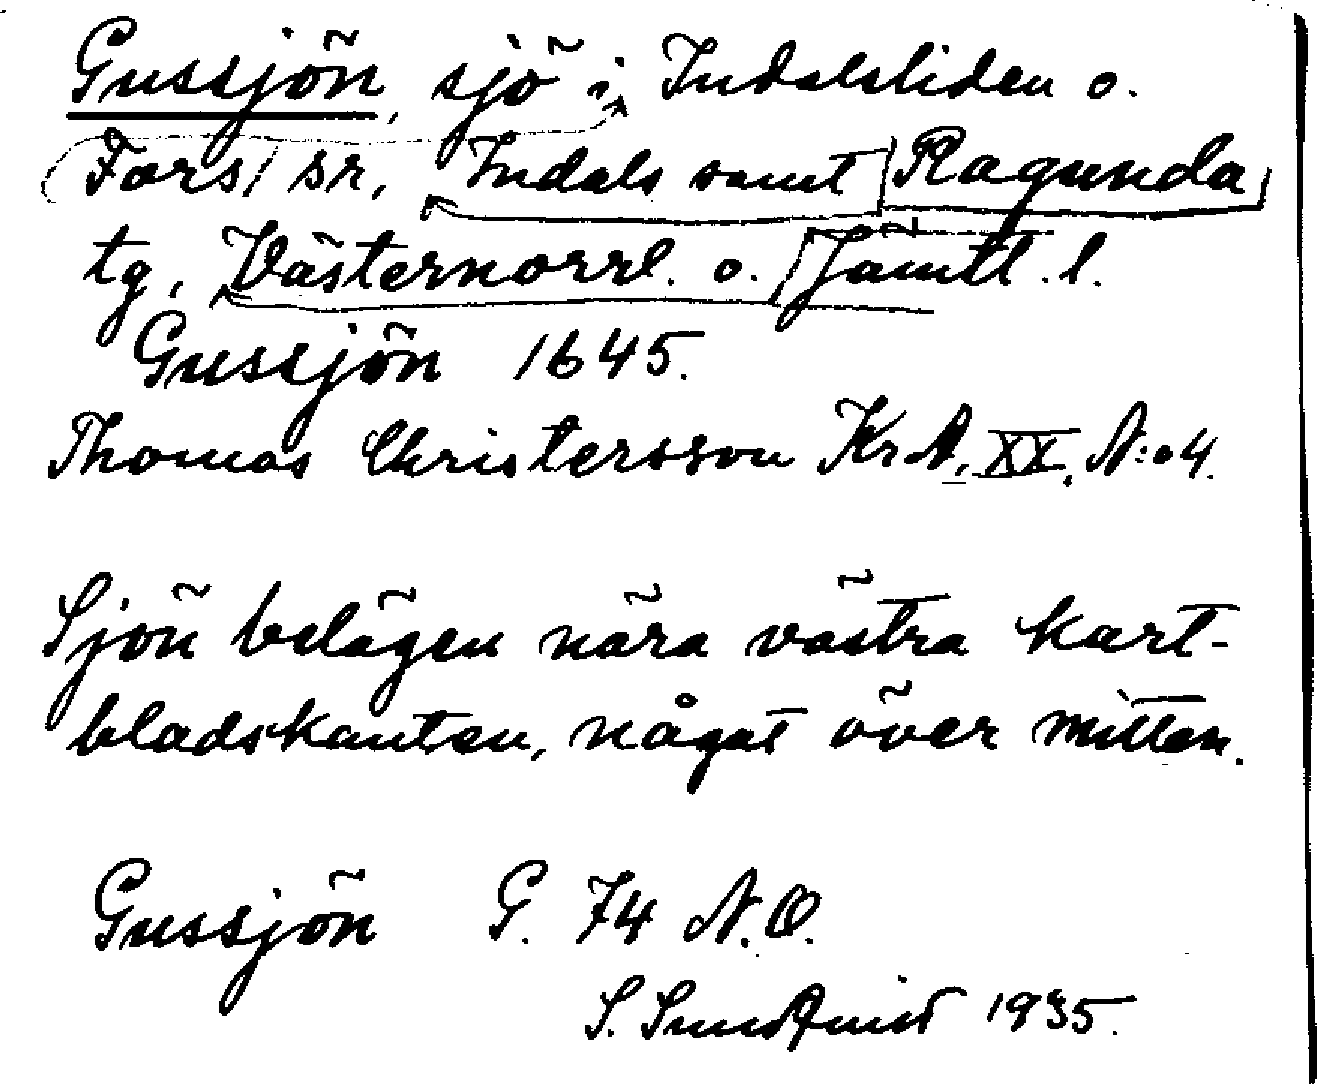 Gussjön, sjö i Indalsliden o.
Fors sr, Indals samt Ragunda
tg, Västernorrl. o. Jämtl. l.
Gussjön 1645.
Thomas Christersson Kr.A, XX, N:o 4.
Sjön belägen nära västra kart-
bladskanten, något över mitten.
Gussjön G. 74 N.O.
S. Sundquist 1935.